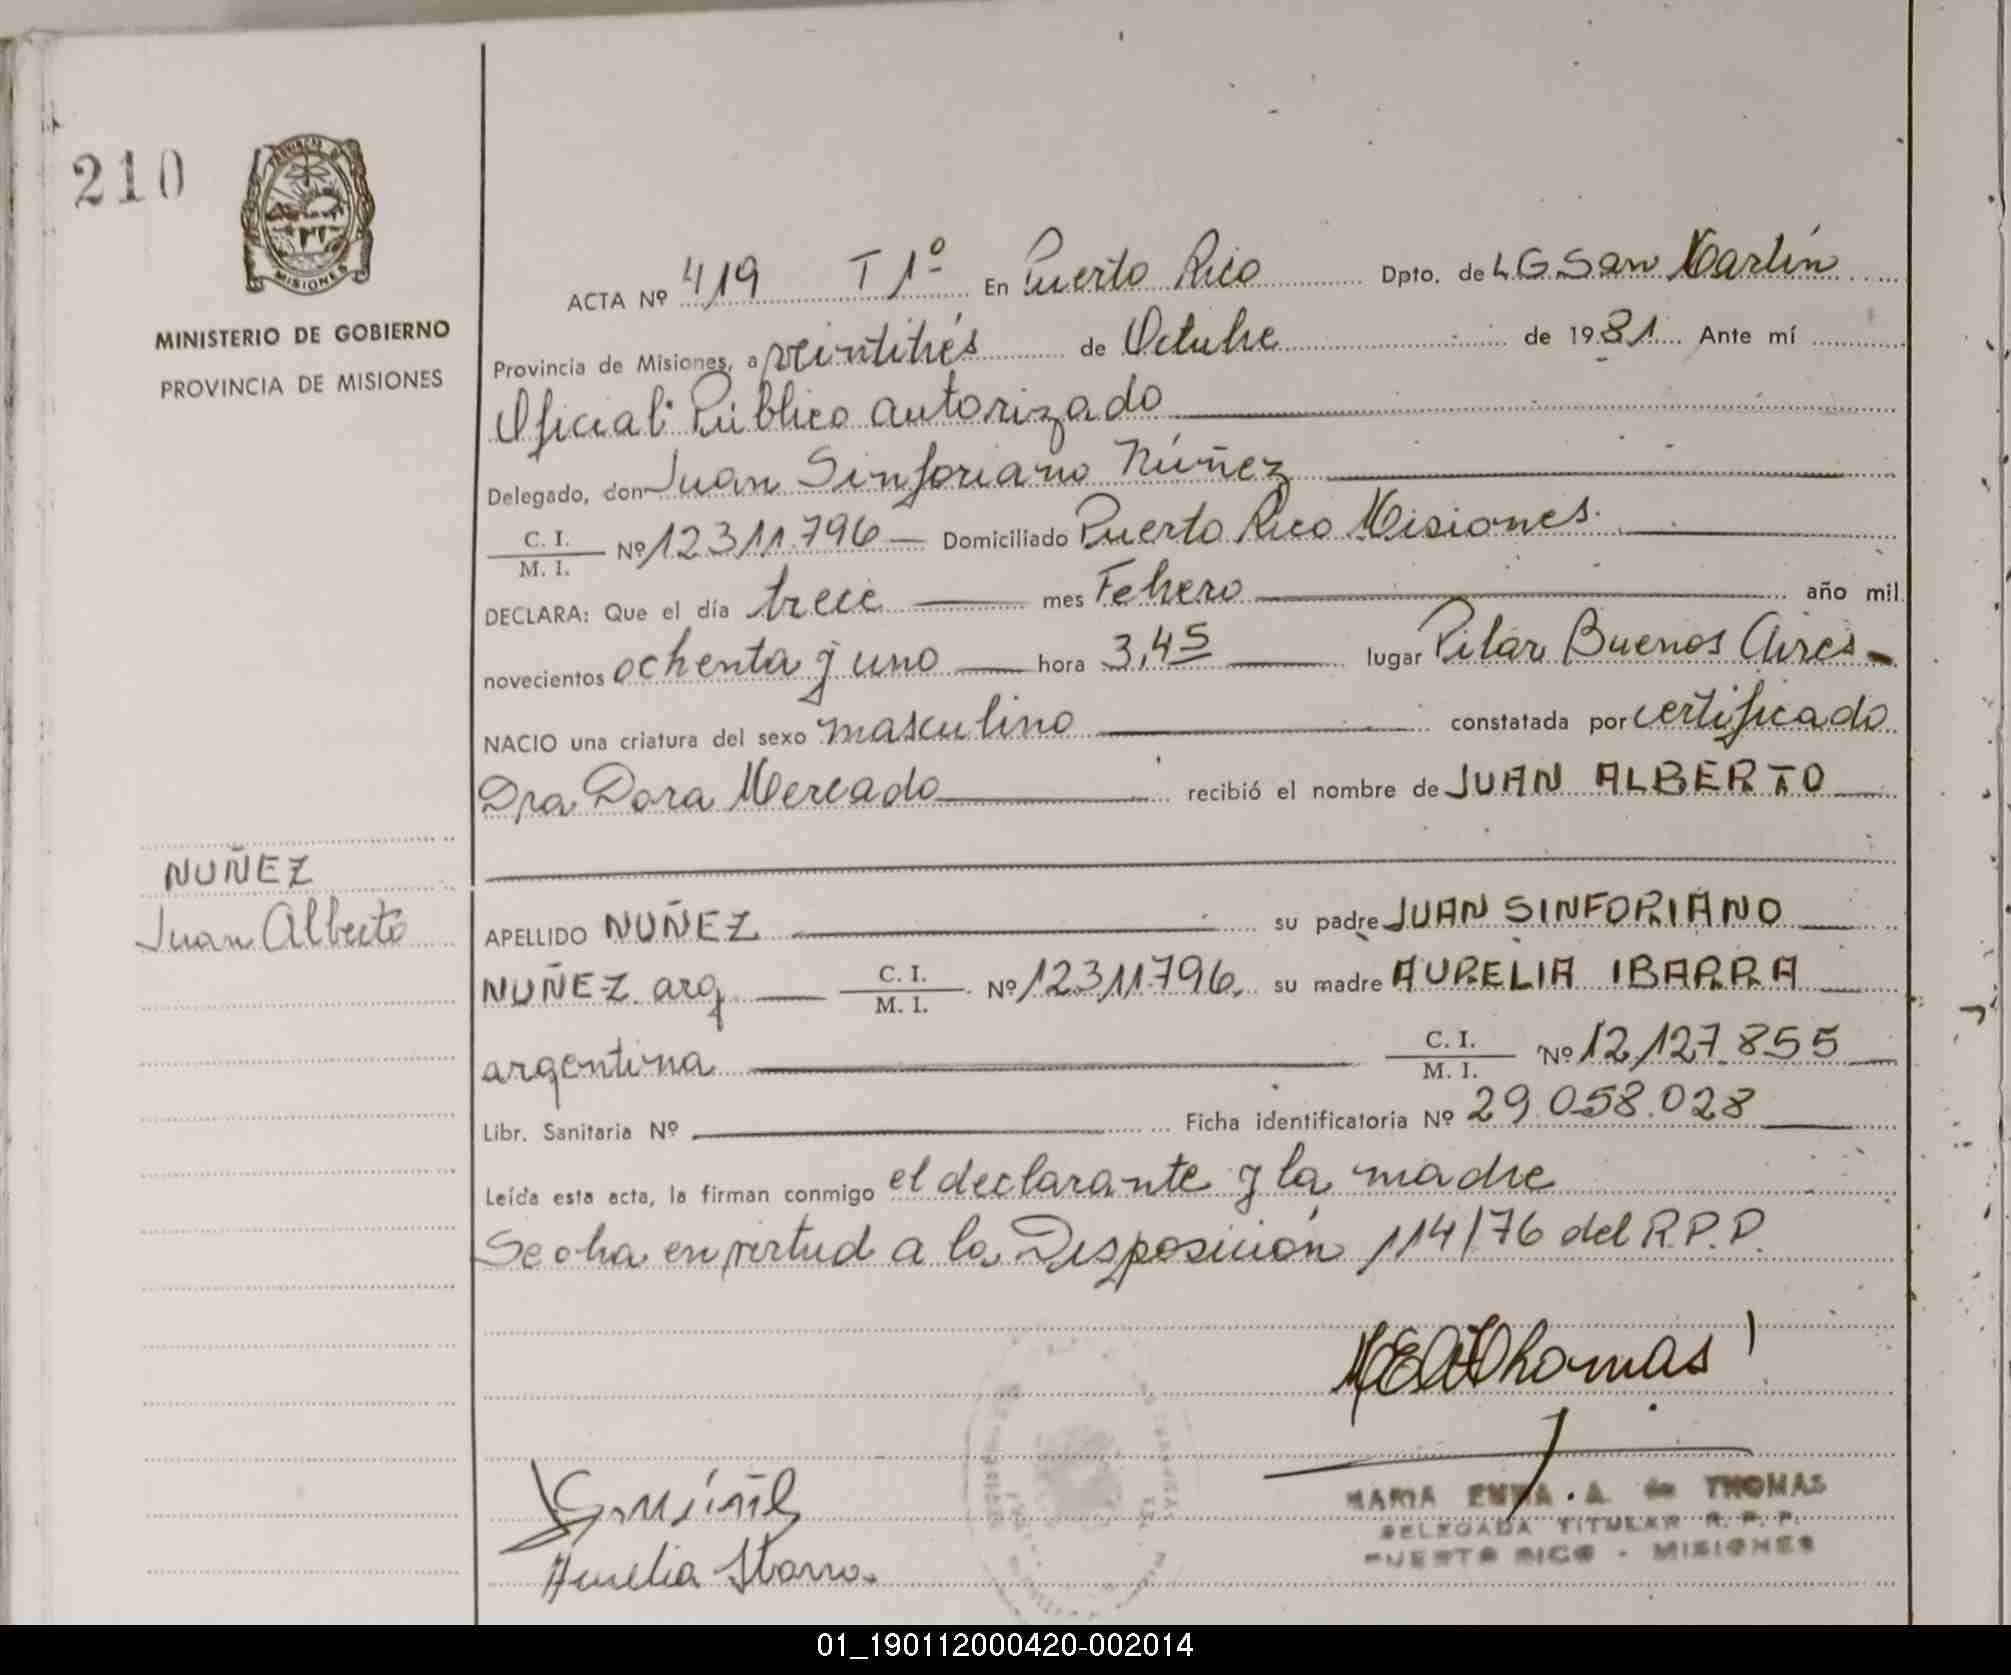 210
PROVINCIA DE
MISIONES
MINISTERIO DE GOBIERNO
PROVINCIA DE MISIONES
ACTA Nº 419 T 1º En Puerto Rico Dpto. de L G San Martín
Provincia de Misiones, a veintitrés de Octubre de 1981 Ante mí
Oficial Público autorizado
Delegado, don Juan Sinforiano Núñez
C. I. / M. I. Nº 12311796 Domiciliado Puerto Rico Misiones.
DECLARA: Que el día trece mes Febrero año mil
novecientos ochenta y uno hora 3,45 lugar Pilar Buenos Aires
NACIO una criatura del sexo masculino constatada por certificado
Dra Dora Mercado recibió el nombre de JUAN ALBERTO
NUÑEZ
Juan Alberto
APELLIDO NUÑEZ su padre JUAN SINFORIANO
NUÑEZ arg C. I. / M. I. Nº 12311796. su madre AURELIA IBARRA
argentina C. I. / M. I. Nº 12.127.855
Libr. Sanitaria Nº Ficha identificatoria Nº 29.058.028
Leída esta acta, la firman conmigo el declarante y la madre
Se en virtud a la Disposición 114/76 del R.P.P.
Thomas
MARIA EMMA A. de THOMAS
DELEGADA TITULAR R. P. P.
PUERTO RICO - MISIONES
Aurelia Ibarra
01_190112000420-002014